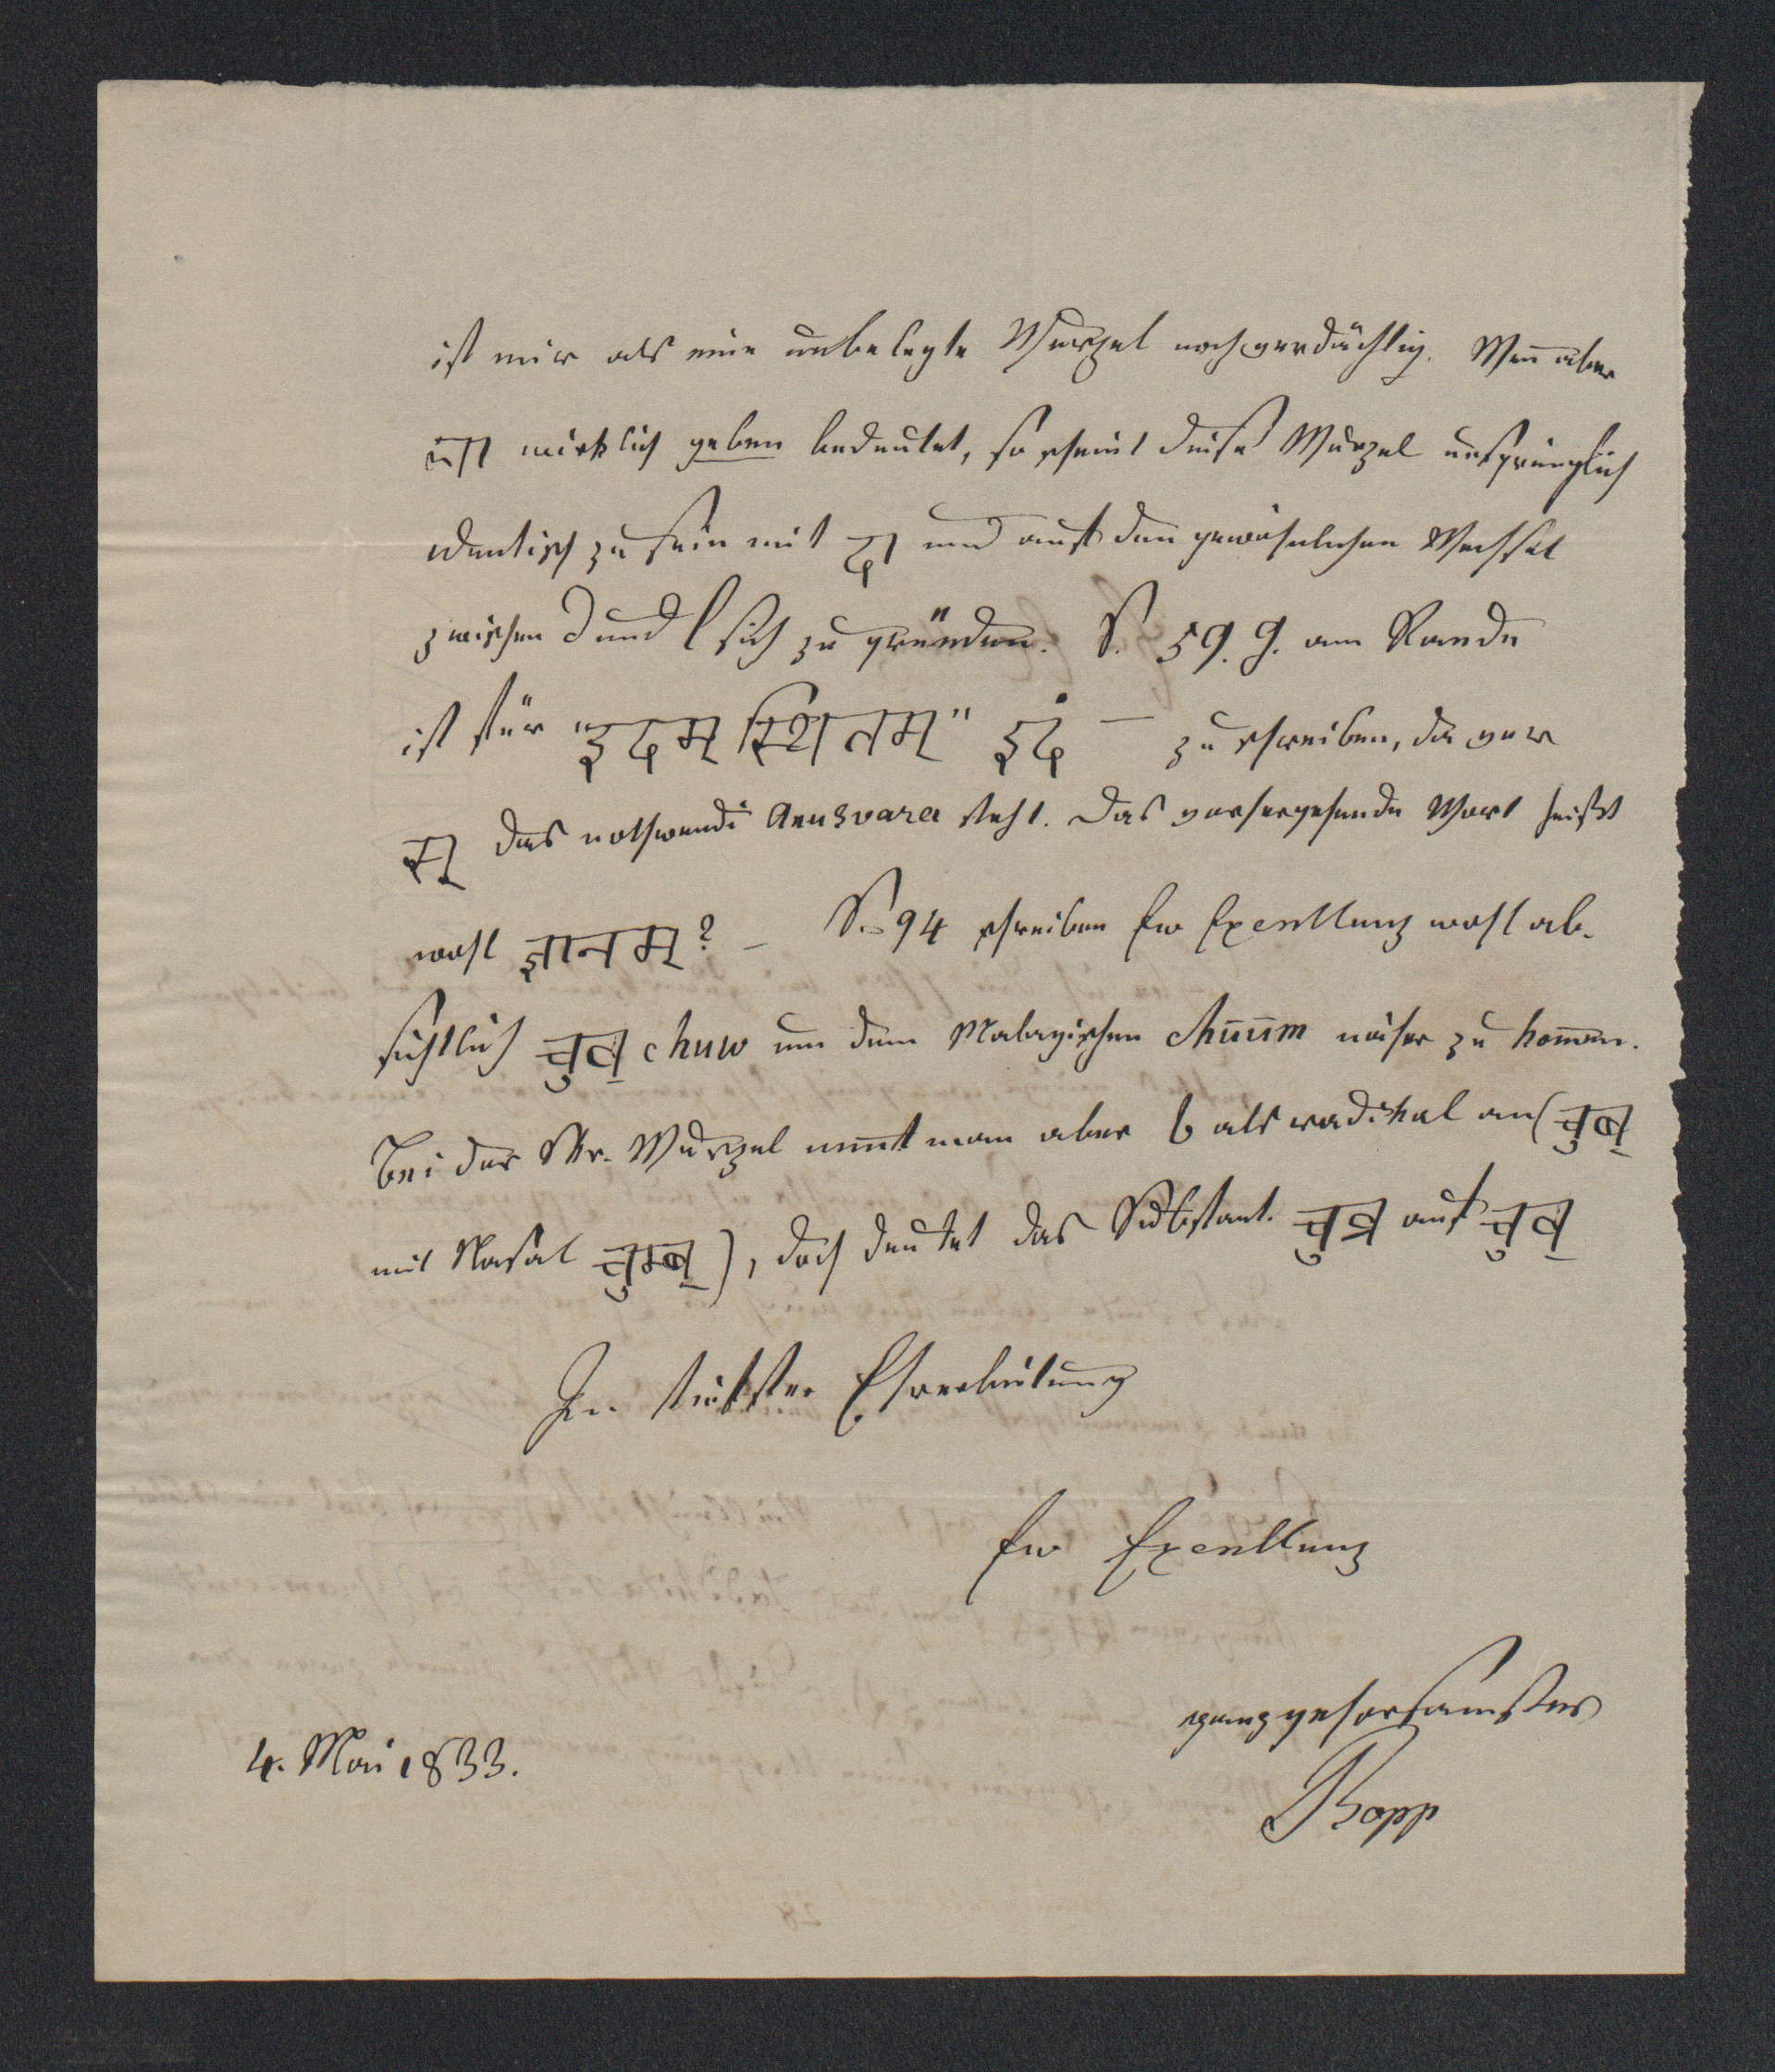 ist mir als eine unbelegte Wurzel noch verdächtig. Wen̄ aber
ला wirklich geben bedeutet, so scheint diese Wurzel ursprünglich
identisch zu sein mit दा und auf den gewöhnlichen Wechsel
zwischen d und l sich zu gründen. S. 59. 9. am Rande
ist für "इदम् स्थितम्" इदं — zu schreiben, da vor
स् das nothwend: Anusvara steht. Das vorhergehende Wort heißt
wohl ज्ञानम्? – S. 94 schreiben Ew Excellenz wohl ab-
sichtlich चुव् chuw um dem Malayischen chīūm näher zu kom̄en.
Bei der Skr. Wurzel nim̄t man aber b als radikal an (चुब्
mit Nasal चुम्ब्), doch deutet das Substant. चुव्र auf चुव्
In tiefster Ehrerbietung
Ew Excellenz
ganz gehorsamster
4. Mai 1833.
Bopp